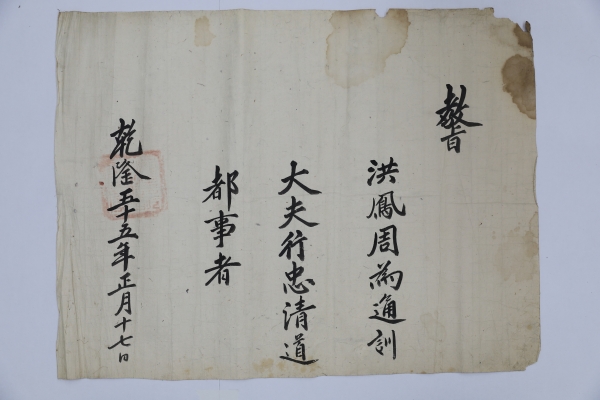 敎旨
洪鳳周為通訓
大夫行忠清道
都事者
乾隆五十五年正月十七日